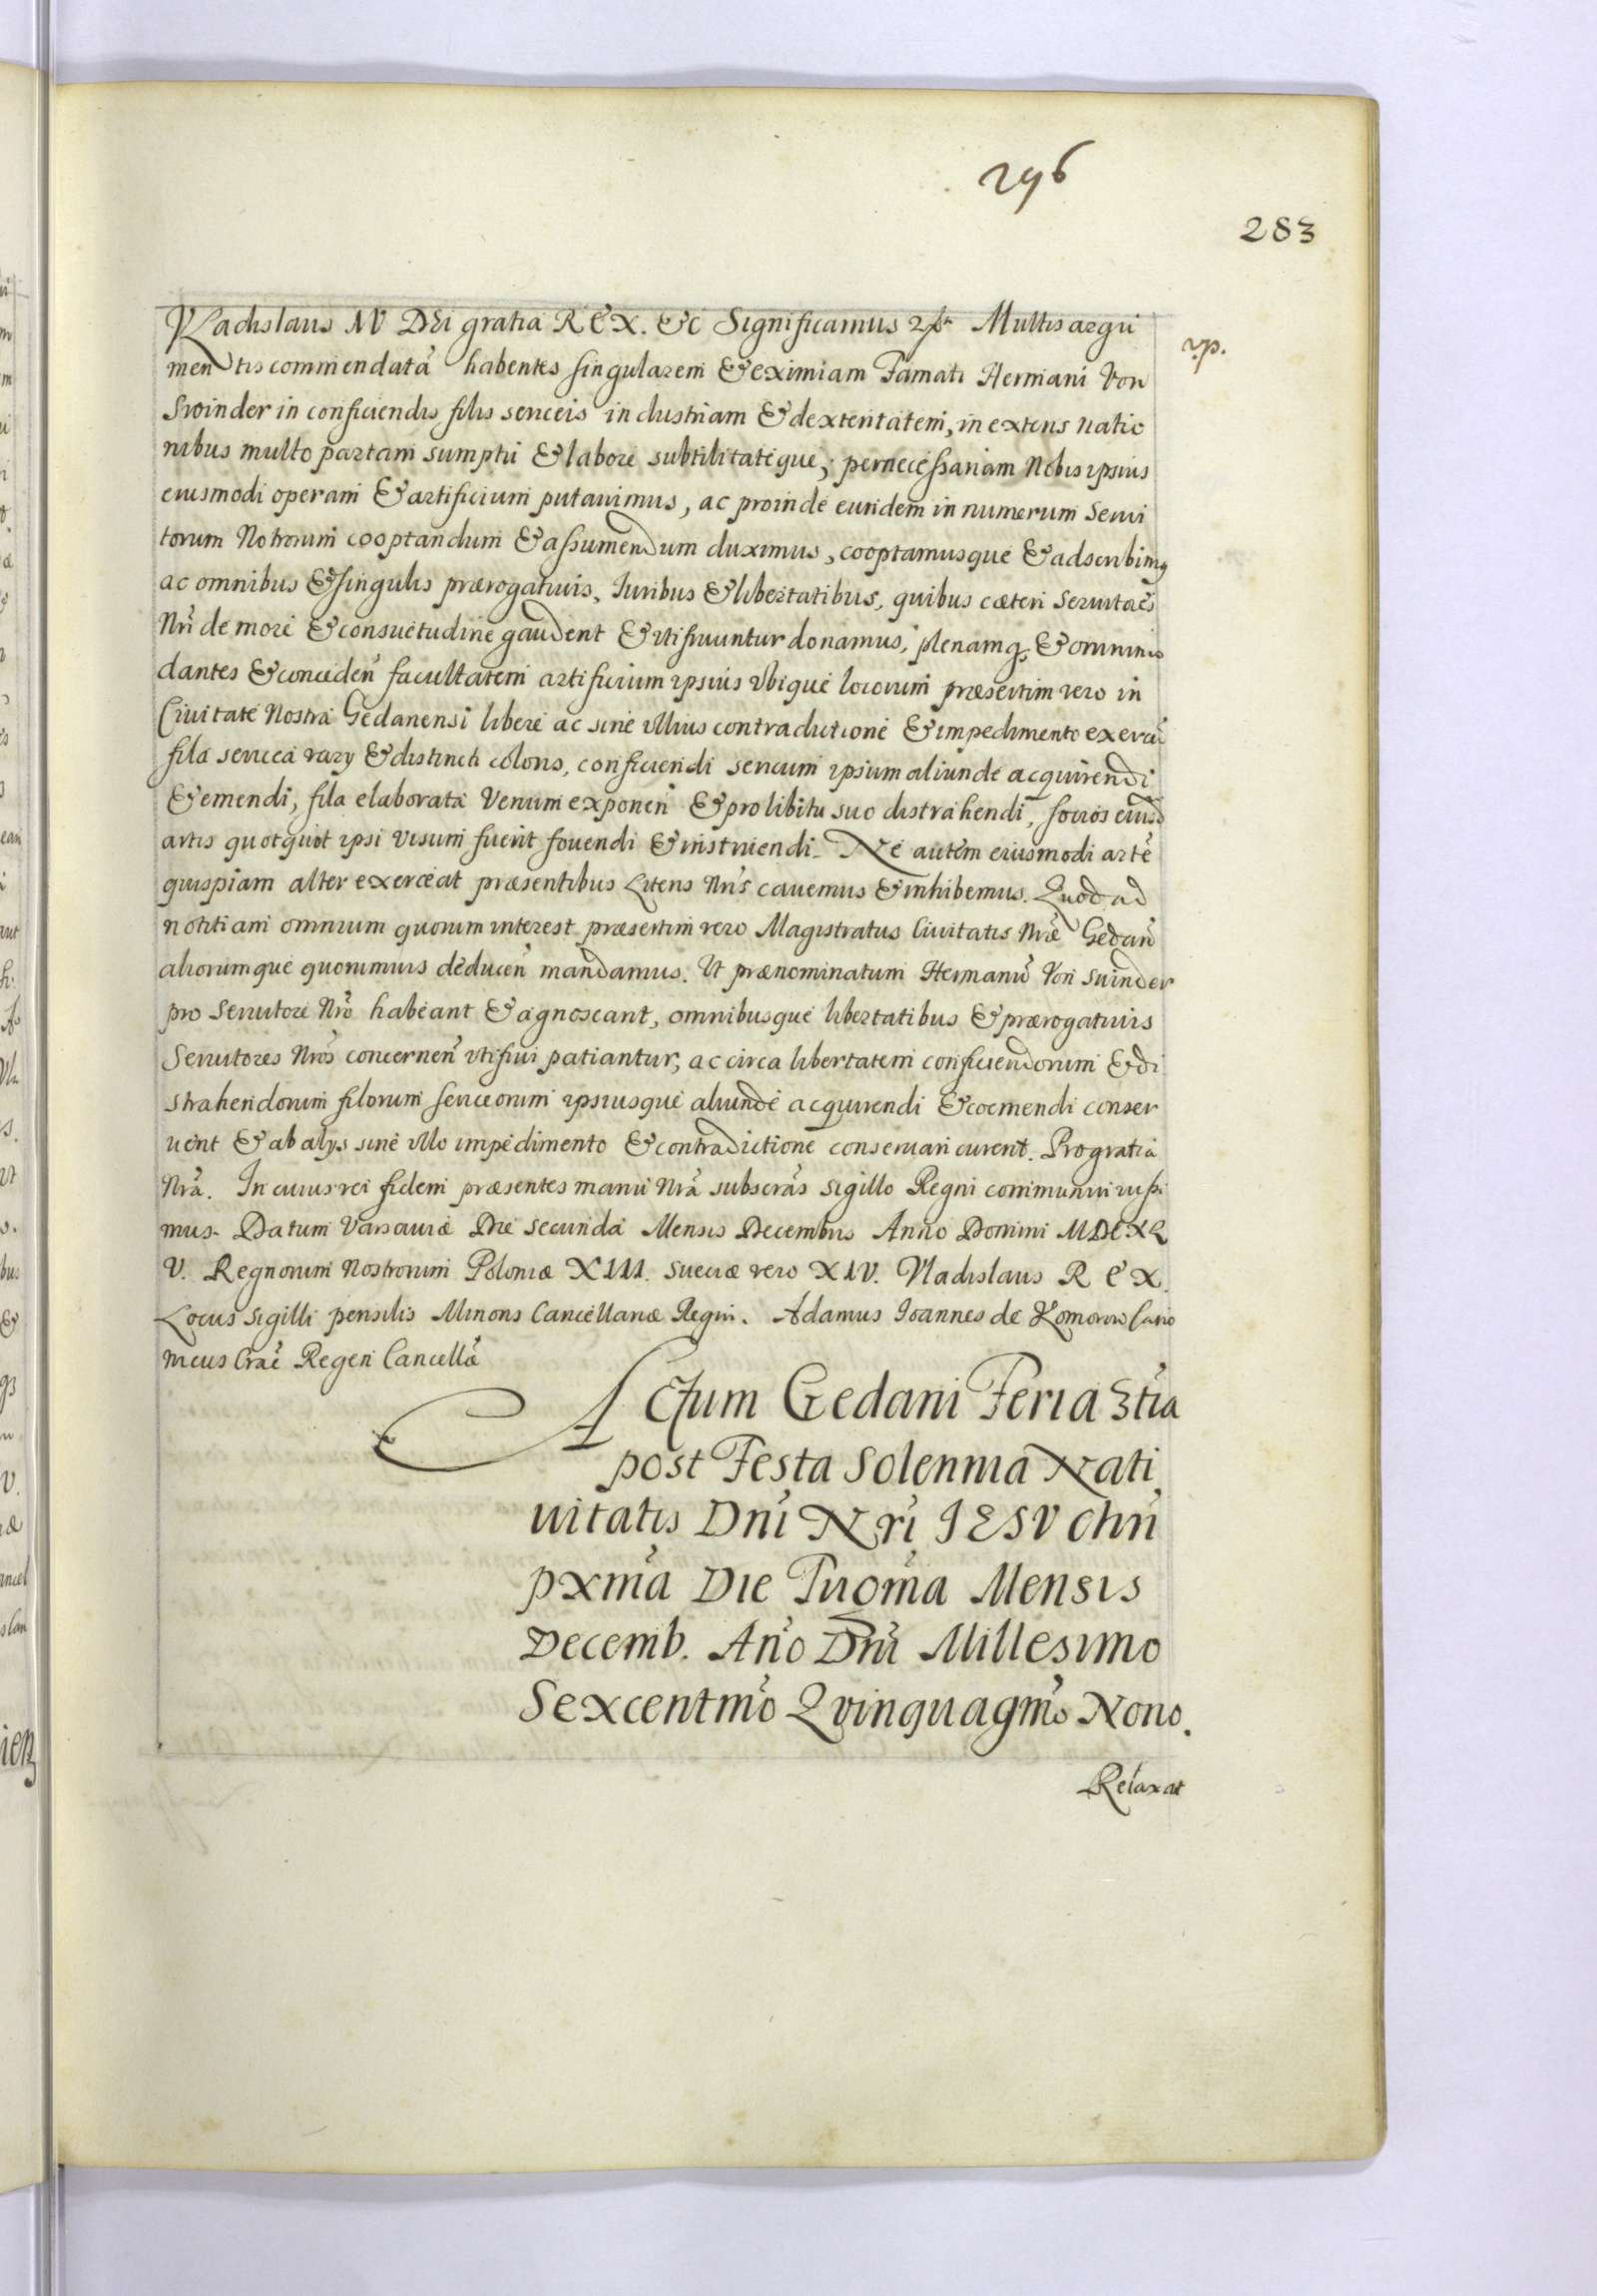 296
283
Vladislaus IV Dei gratia REX. &c Significamus Multis argu
mentis commendatā habentes singularem & eximiam Famati Hermani Von
Swinder in conficiendis filis sericeis industriam & dexteritatem, in exteris natio
nibus multo partam sumptu & labore subtilitateque, pernecessariam Nobis ipsius
eiusmodi operam & artificium putavimus, ac proinde eundem in numerum Servi
torum Notrorum cooptandum & assumendum duximus, cooptamusque & adscribimg
ac omnibus & singulis prærogativis, Iuribus & libertatibus, quibus cæteri Servitores
Nri de more & consuetudine gaudent & utifruuntur donamus, plenamq & omnimo
dantes & conceden facultatem artificium ipsius Vbique locorum præsertim vero in
Civitate Nostra Gedanensi libere ac sine ullius contradictione & impedimento exercē
fila sericea varij & distincti coloris, conficiendi sericum ipsum aliunde acquirendi
& emendi, fila elaborata Venum exponen & pro libitu suo distrahendi, socios eiusd
artis quotquot ipsi visum fuerit fovendi & instruendi. Ne autem eiusmodi artē
quispiam alter exerceat præsentibus Literis Nris cavemus & inhibemus. Quod ad
notitiam omnium quorum interest præsertim vero Magistratus Civitatis Nræ Gedan
aliorumque quorumvis deducen mandamus. Ut prænominatum Hermanū Von Suinder
pro Servitore Nro habeant & agnoscant, omnibusque libertatibus & prærogativis
Servitores Nros concernen utifrui patiantur, ac circa libertatem conficiendorum & di
strahendorum filorum sericeorum ipsiusque aliunde acquirendi & coemendi conser
vent & ab alijs sine ullo impedimento & contradictione conservari curent. Pro gratia
Nra. In cuius rei fidem præsentes manu Nra subscras Sigillo Regni communiri iussi
mus. Datum Varsaviæ Die secunda Mensis Decembris Anno Domini MDCXL
V. Regnorum Nostrorum Poloniæ XIII. Sueciæ vero XIV. Vladislaus REX.
Locus Sigilli pensilis Minoris Cancellariæ Regni. Adamus Ioannes de Komorow Cano
nicus Crac Regen Cancellā
Actum Gedani Feria 3tia
post Festa Solennia Nati
vitatis Dni Nri IESV Chri
pxma Die Tricma Mensis
Decemb. Año Dni Millesimo
Sexcentmo Qvinquagmo Nono.
Relaxat